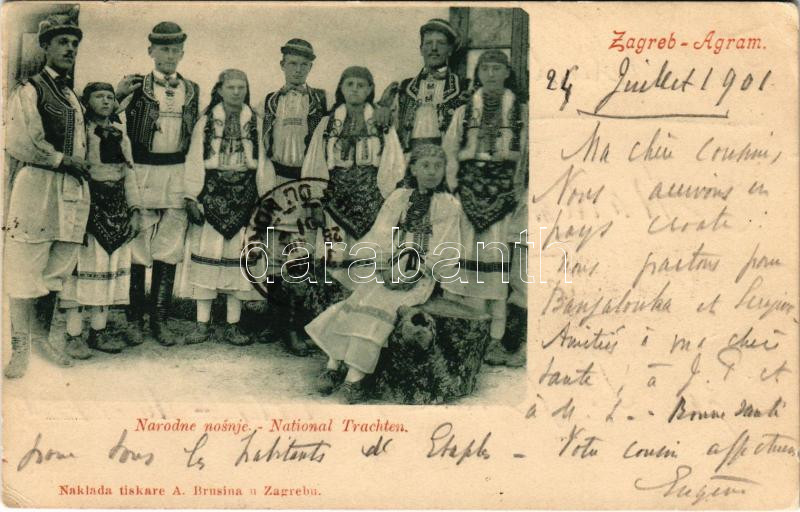 Zagreb - Agram.
24 Juillet 1901
Ma chère cousine,
Nous arrivons en
pays croate:
nous partons pour
Banjalouka et
Amitiés à ma chère
tante, à J. P et
à M. L. - Bonne santé
pour tous les habitants de Etaples -
Votre cousin affectueux
Eugène
Narodne nošnje. - National Trachten.
Nakłada tiskare A. Brusina u Zagrebu.
darabanth.com